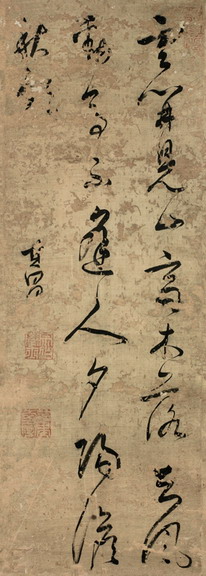 雲開見山高木落知風
勁亭下不逢人夕陽澹
秋影
其昌